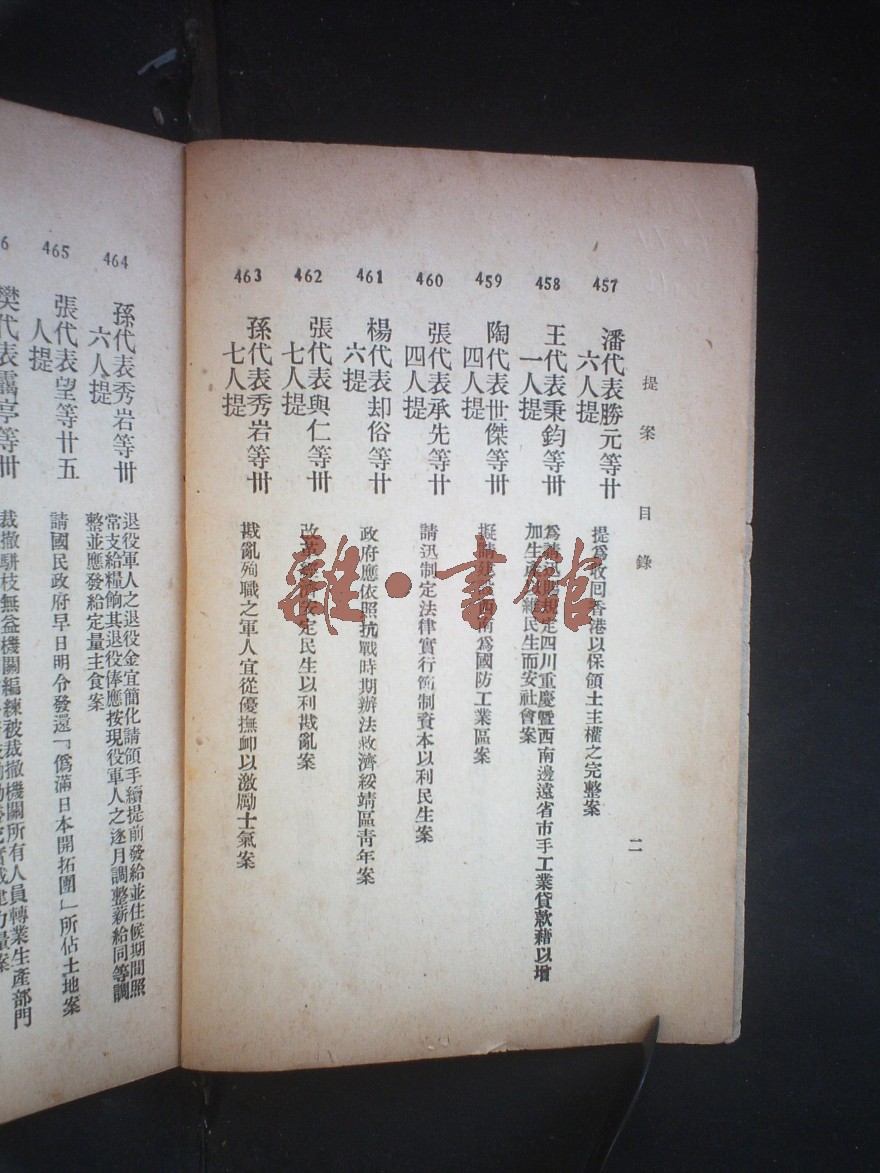 提案目錄
二
457
潘代表勝元等廿
六人提
提爲收回香港以保領土主權之完整案
458
王代表秉鈞等卅
一人提
規定四川重慶暨西南邊遠省市手工業貸款藉以增
加生產
民生而安社會案
459
陶代表世傑等卅
四人提
擬請
西南爲國防工業區案
460
張代表承先等廿
四人提
請迅制定法律實行節制資本以利民生案
461
楊代表却俗等廿
六提
政府應依照抗戰時期辦法救濟綏靖區靑年案
462
張代表與仁等卅
七人提
改革經濟安定民生以利戡亂案
463
孫代表秀岩等卅
七人提
戡亂殉職之軍人宜從優撫卹以激勵士氣案
464
孫代表秀岩等卅
六人提
退役軍人之退役金宜簡化請領手續提前發給並住候期間照
常支給糧餉其退役俸應按現役軍人之逐月調整薪給同等調
整並應發給定量主食案
465
張代表望等廿五
人提
請國民政府早日明令發還「僞滿日本開拓團」所佔土地案
6
樊代表
亭等卅
裁撤駢枝無益機關編練被裁撤機關所有人員轉業生產部門
雜·書館